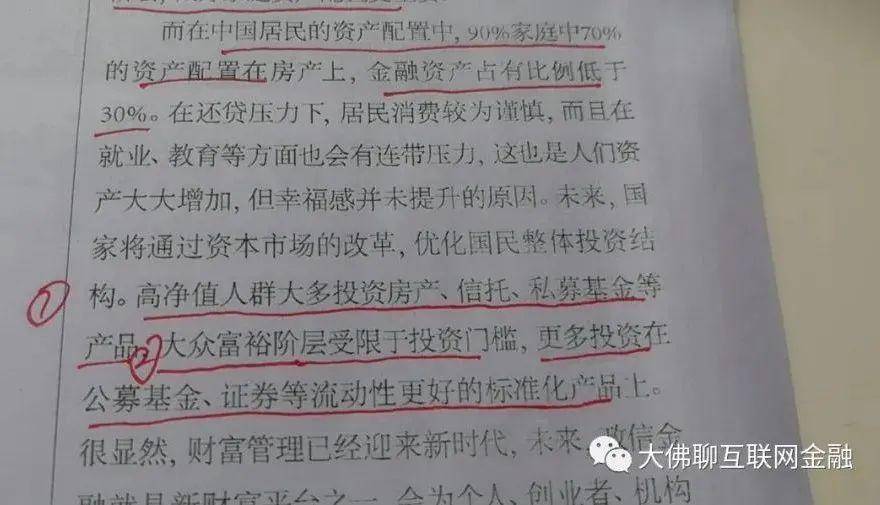 而在中国居民的资产配置中,90%家庭中70%
的资产配置在房产上,金融资产占有比例低于
30%。在还贷压力下,居民消费较为谨慎,而且在
就业、教育等方面也会有连带压力,这也是人们资
产大大增加,但幸福感并未提升的原因。未来,国
家将通过资本市场的改革,优化国民整体投资结
① 构。高净值人群大多投资房产、信托、私募基金等
产品 ② 大众富裕阶层受限于投资门槛,更多投资在
公募基金、证券等流动性更好的标准化产品上。
很显然,财富管理已经迎来新时代,未来,微信金
融就是新财富平台之一,会为个人、创业者、机构
大佛聊互联网金融